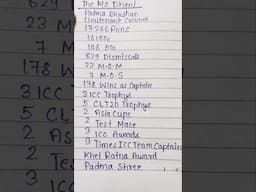 The MS Dhoni
Padma Bhushan
Lieutenant Colonel
17266 Runs
16 100s
108 50s
829 Dismissals
23 M.O.M
7 M.O.S
178 Wins as Captain
3 ICC Trophys
5 CLT20 Trophys
2 Asia Cups
2 Test Mace
3 ICC Awards
9 Times ICC Team Captain
Khel Ratna Award
Padma Shree